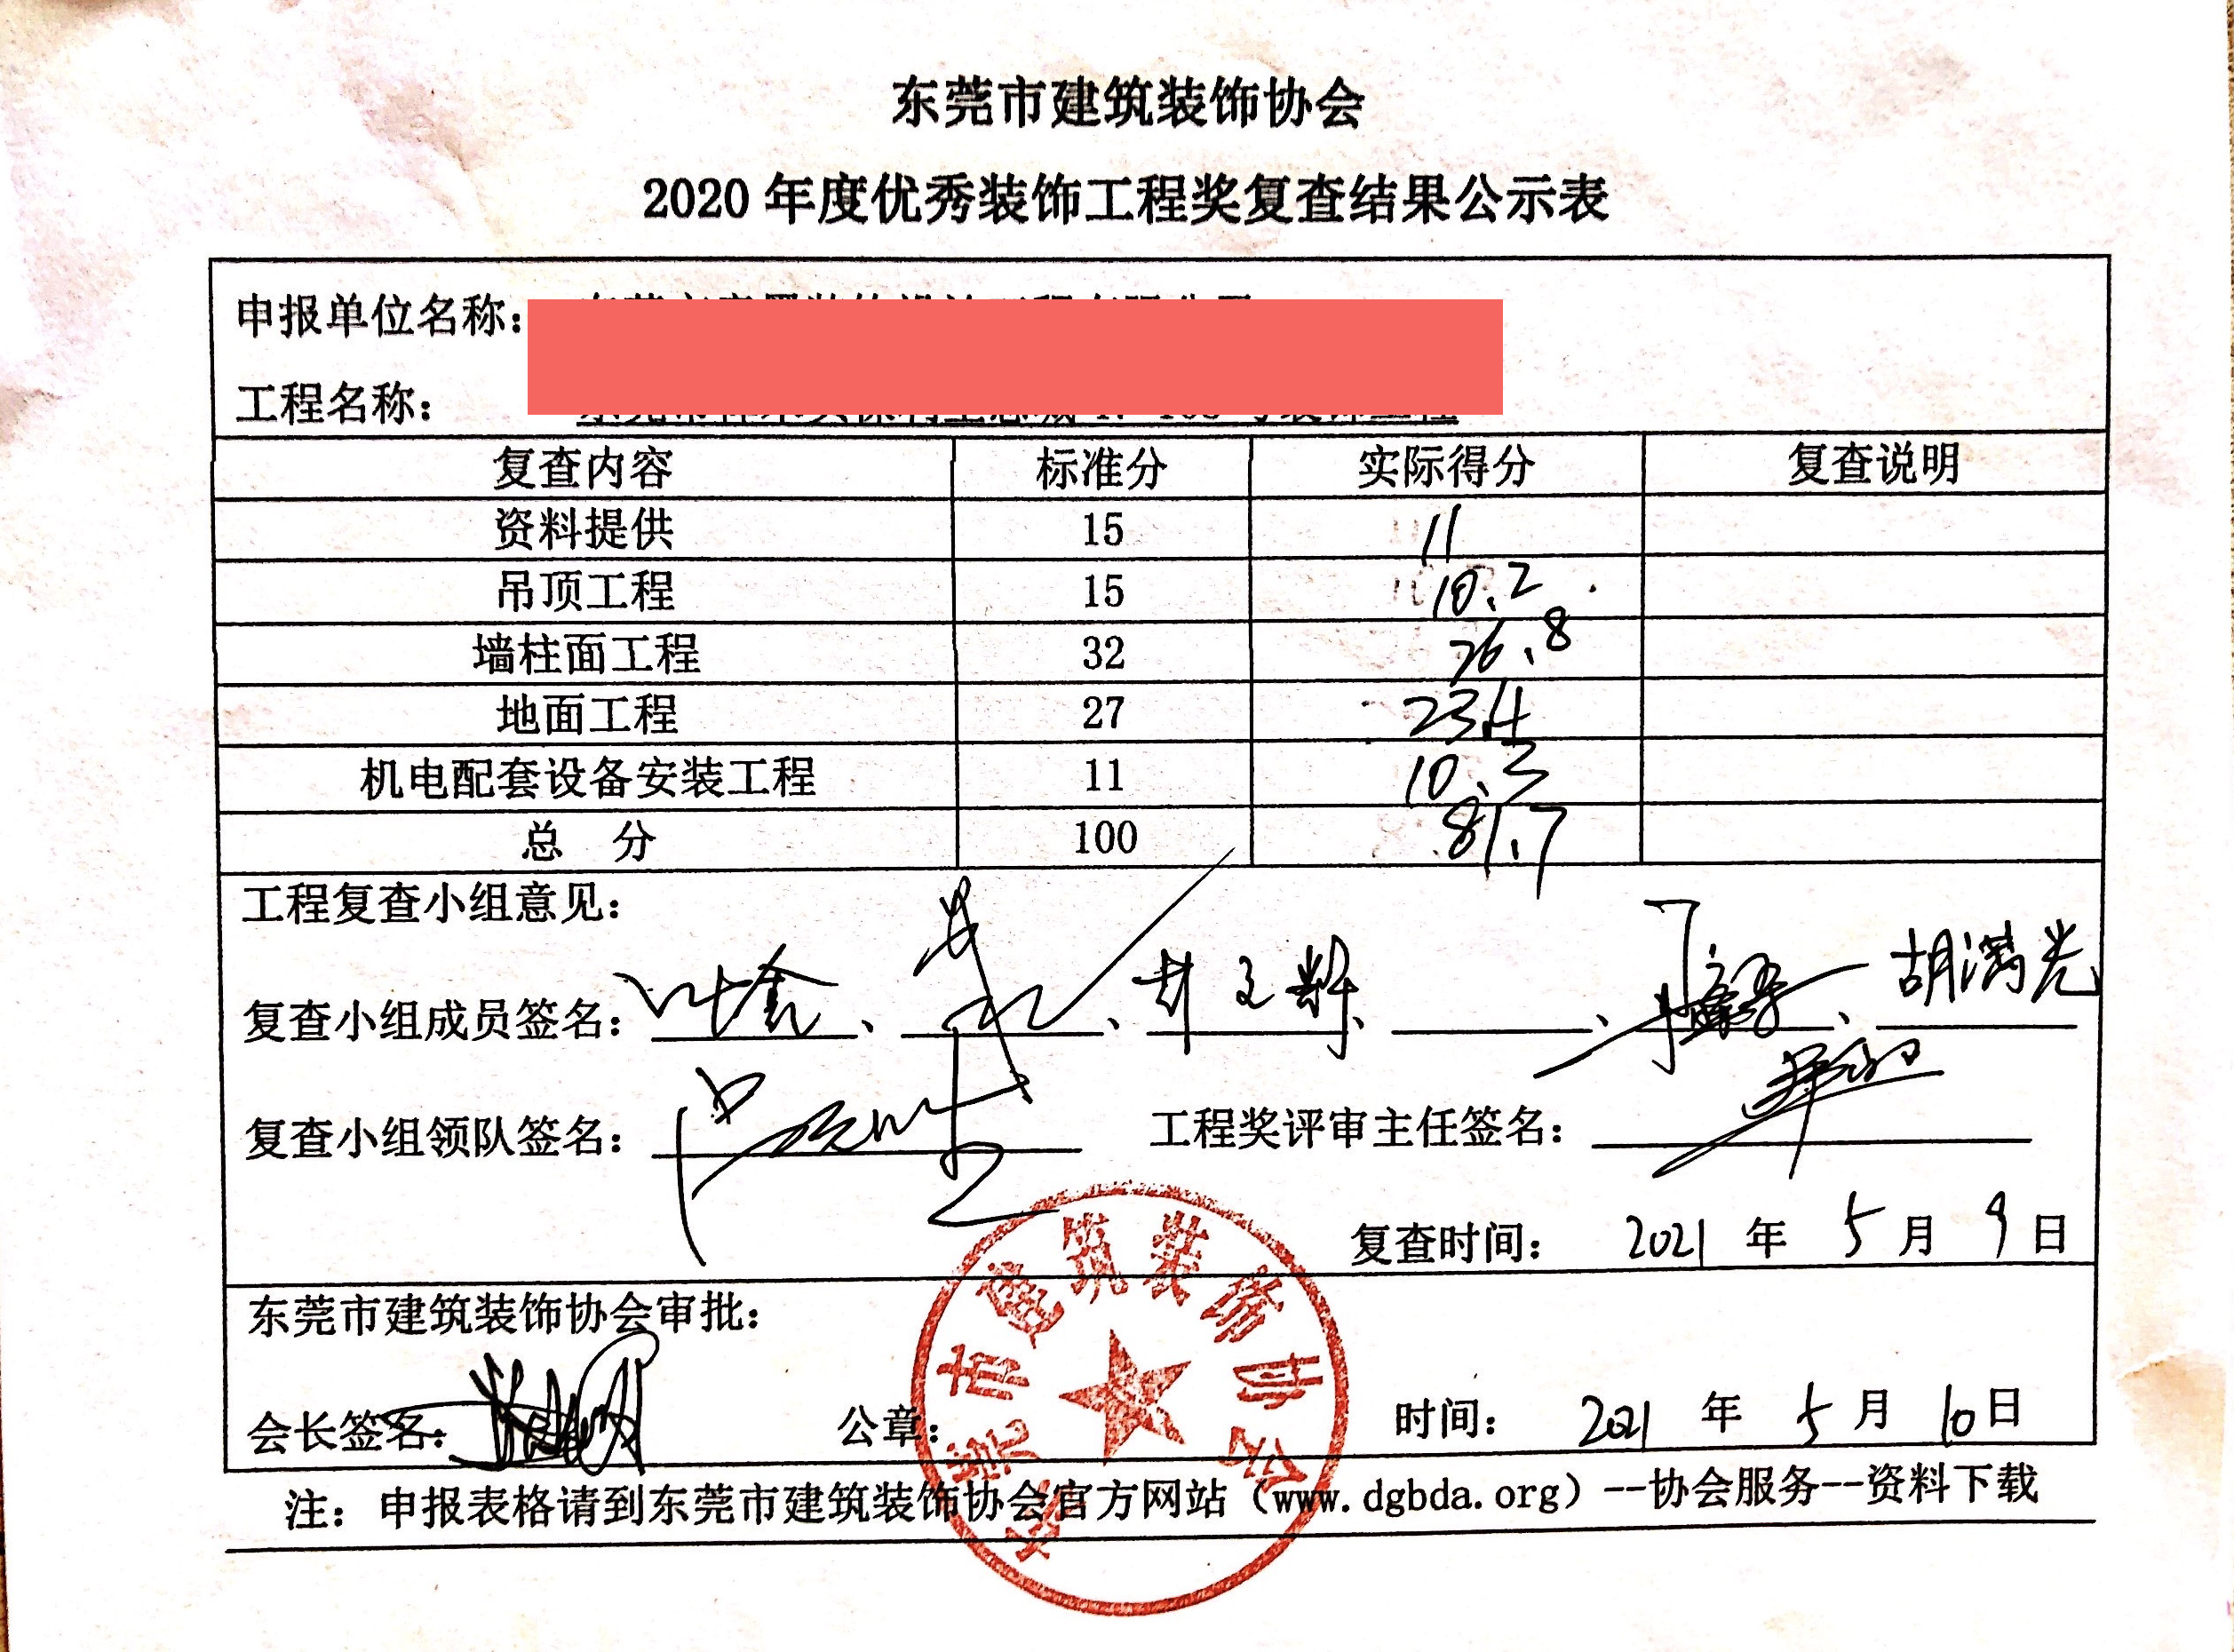 东莞市建筑装饰协会
2020 年度优秀装饰工程奖复查结果公示表
申报单位名称：
工程名称：
复查内容 标准分 实际得分 复查说明
资料提供 15 11
吊顶工程 15 10.2
墙柱面工程 32 26.8
地面工程 27 23.4
机电配套设备安装工程 11 10.3
总 分 100 81.7
工程复查小组意见：
复查小组成员签名： 、 、 、 、 、胡满光
复查小组领队签名： 工程奖评审主任签名：
复查时间： 2021 年 5 月 9 日
东莞市建筑装饰协会审批：
会长签名： 公章： 时间： 2021 年 5 月 10 日
东莞市建筑装饰协会
注：申报表格请到东莞市建筑装饰协会官方网站（www.dgbda.org）--协会服务--资料下载